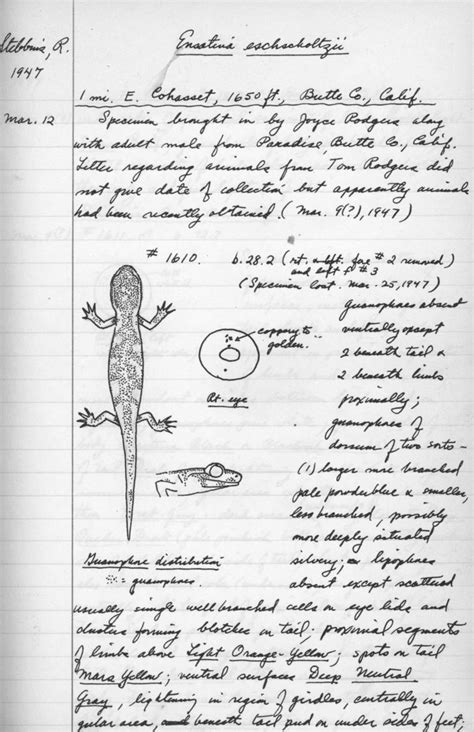 Stebbins, R.
1947
Ensatina eschscholtzii
1 mi. E. Cohasset, 1650 ft., Butte Co., Calif.
Mar. 12
Specimen brought in by Joyce Rodgers along
with adult male from Paradise, Butte Co., Calif.
Letter regarding animals from Tom Rodgers did
not give date of collection but apparently animals
had been recently obtained. (Mar. 9(?), 1947)
# 1610. b. 28.2 (rt. fore # 2 removed)
and left f # 3
(Specimen lost. Mar. 25, 1947)
guanophores absent
ventrally except
2 beneath tail &
2 beneath limbs
proximally;
guanophores of
dorsum of two sorts -
(1) larger more branched
pale powder blue & smaller,
less branched, possibly
more deeply situated
silvery; lipophores
absent except scattered
coppery to
golden.
Rt. eye
Guanophore distribution
= guanophores.
usually single well branched cells on eye lids and
clusters forming blotches on tail; proximal segments
of limbs above Light Orange-Yellow; spots on tail
Mars Yellow; ventral surfaces Deep Neutral
Gray, lightening in region of girdles, centrally in
gular area, and beneath tail and on under sides of feet;